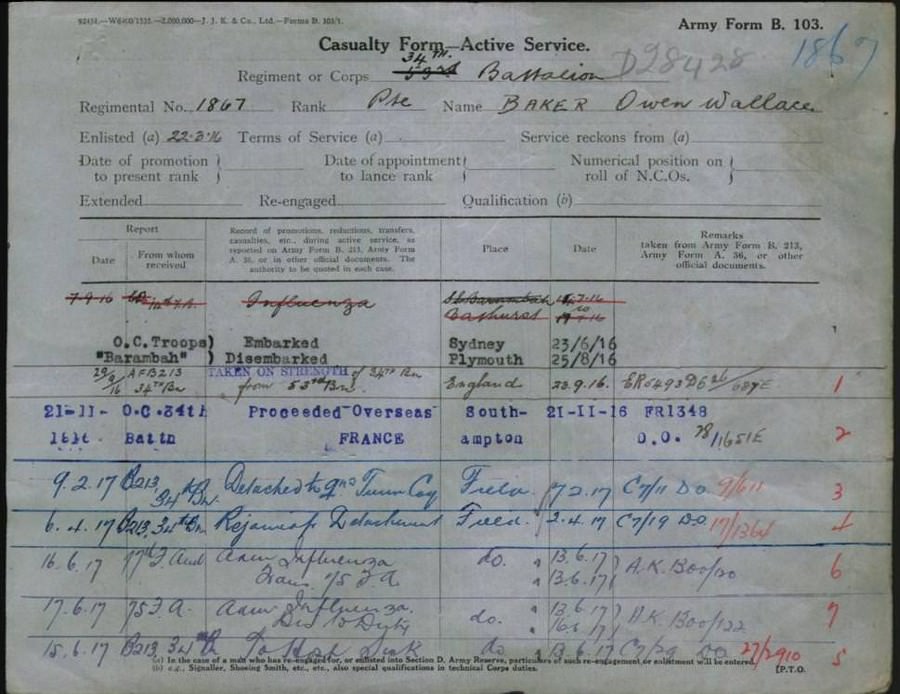 92434.—W6400/1535.—2,000,000—J. J. K. & Co., Ltd.—Forms B. 103/1.
Army Form B. 103.
Casualty Form—Active Service.
1867
34TH.
Regiment or Corps 53rd Battalion D28428
Regimental No. 1867 Rank Pte Name BAKER Owen Wallace
Enlisted (a) 22·3·16 Terms of Service (a) Service reckons from (a)
Date of promotion to present rank Date of appointment to lance rank Numerical position on roll of N.C.Os.
Extended Re-engaged Qualification (b)
Report
Date From whom received
Record of promotions, reductions, transfers, casualties, etc., during active service, as reported on Army Form B. 213, Army Form A. 36, or in other official documents. The authority to be quoted in each case.
Place
Date
Remarks taken from Army Form B. 213, Army Form A. 36, or other official documents.
7-9-16 Influenza
Bathurst
O.C.Troops) Embarked Sydney 23/6/16
"Barambah" ) Disembarked Plymouth 25/8/16
29/9/16 AFB213 34TH Bn TAKEN ON STRENGTH of 34TH Bn from 53rd Bn England 23.9.16. 1
21-11-1616 O.C.34th Battn Proceeded Overseas FRANCE South-ampton 21-11-16 FR1348 D.O. 78/1651E 2
9.2.17 B213 34th Bn Detached to 9th Tunn Coy Field 7.2.17 C7/11 DO 9/611 3
6.4.17 B213 34th Bn Rejoined Detachment Field 2.4.17 C7/19 DO 17/1364 4
16.6.17 Adm Influenza Trans 75 F.A do. 13.6.17 13.6.17 A.K. 6
17.6.17 75 F.A. Adm Influenza. Dis to Duty do. 13.6.17 16.6.17 A.K. 7
15.6.17 B213 34th Bn To Hosp Sick do 13.6.17 C7/29 DO 27/2910 5
(a) In the case of a man who has re-engaged for, or enlisted into Section D. Army Reserve, particulars of such re-engagement or enlistment will be entered.
(b) e.g., Signaller, Shoeing Smith, etc., etc., also special qualifications in technical Corps duties. [P.T.O.